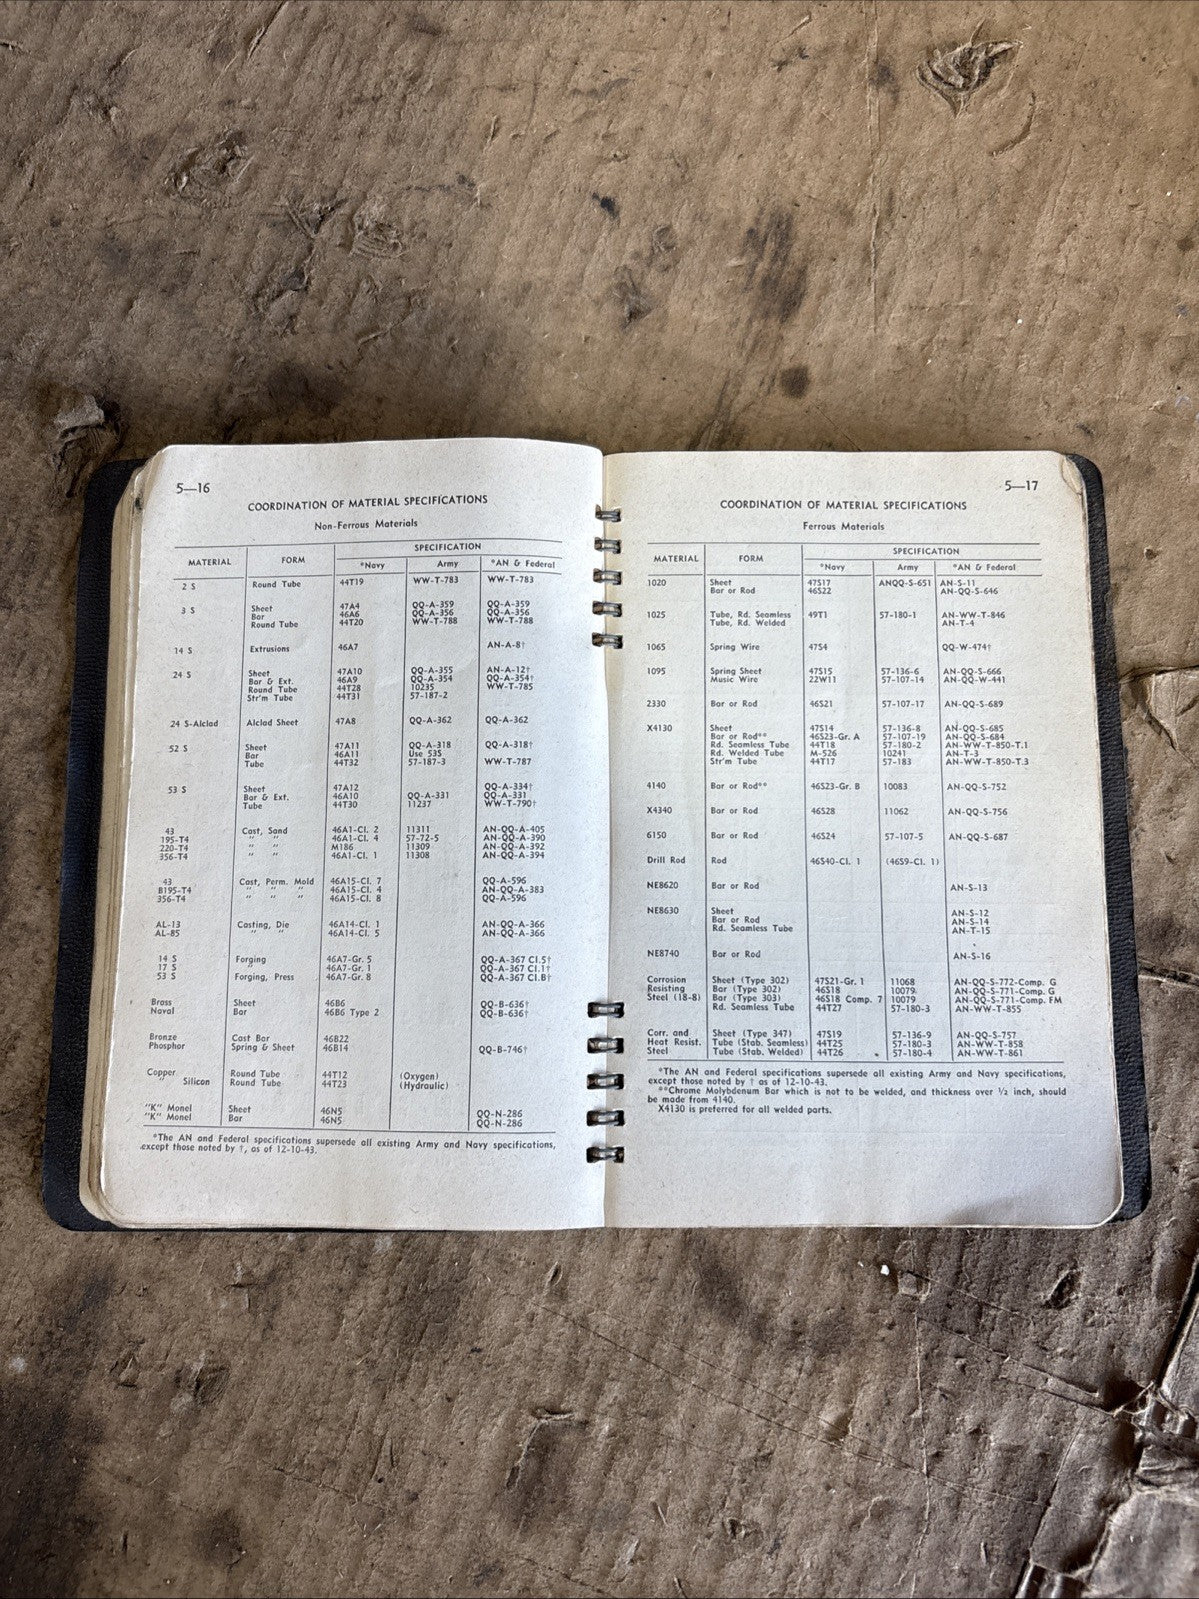 5—16
COORDINATION OF MATERIAL SPECIFICATIONS
Non-Ferrous Materials
MATERIAL FORM SPECIFICATION
*Navy Army *AN & Federal
2 S Round Tube 44T19 WW-T-783 WW-T-783
3 S Sheet 47A4 QQ-A-359 QQ-A-359
Bar 46A6 QQ-A-356 QQ-A-356
Round Tube 44T20 WW-T-788 WW-T-788
14 S Extrusions 46A7 AN-A-8†
24 S Sheet 47A10 QQ-A-355 AN-A-12†
Bar & Ext. 46A9 QQ-A-354 QQ-A-354†
Round Tube 44T28 10235 WW-T-785
Str'm Tube 44T31 57-187-2
24 S-Alclad Alclad Sheet 47A8 QQ-A-362 QQ-A-362
52 S Sheet 47A11 QQ-A-318 QQ-A-318†
Bar 46A11 Use 53S
Tube 44T32 57-187-3 WW-T-787
53 S Sheet 47A12 QQ-A-334†
Bar & Ext. 46A10 QQ-A-331 QQ-A-331
Tube 44T30 11237 WW-T-790†
43 Cast, Sand 46A1-Cl. 2 11311 AN-QQ-A-405
195-T4 " " 46A1-Cl. 4 57-72-5 AN-QQ-A-390
220-T4 " " M186 11309 AN-QQ-A-392
356-T4 " " 46A1-Cl. 1 11308 AN-QQ-A-394
43 Cast, Perm. Mold 46A15-Cl. 7 QQ-A-596
B195-T4 " " " 46A15-Cl. 4 AN-QQ-A-383
356-T4 " " " 46A15-Cl. 8 QQ-A-596
AL-13 Casting, Die 46A14-Cl. 1 AN-QQ-A-366
AL-85 " " 46A14-Cl. 5 AN-QQ-A-366
14 S Forging 46A7-Gr. 5 QQ-A-367 Cl.5†
17 S 46A7-Gr. 1 QQ-A-367 Cl.1†
53 S Forging, Press 46A7-Gr. 8 QQ-A-367 Cl.8†
Brass Sheet 46B6 QQ-B-636†
Naval Bar 46B6 Type 2 QQ-B-636†
Bronze Cast Bar 46B22
Phosphor Spring & Sheet 46B14 QQ-B-746†
Copper Round Tube 44T12 (Oxygen)
" Silicon Round Tube 44T23 (Hydraulic)
"K" Monel Sheet 46N5 QQ-N-286
"K" Monel Bar 46N5 QQ-N-286
*The AN and Federal specifications supersede all existing Army and Navy specifications,
except those noted by †, as of 12-10-43.
5—17
COORDINATION OF MATERIAL SPECIFICATIONS
Ferrous Materials
MATERIAL FORM SPECIFICATION
*Navy Army *AN & Federal
1020 Sheet 47S17 ANQQ-S-651 AN-S-11
Bar or Rod 46S22 AN-QQ-S-646
1025 Tube, Rd. Seamless 49T1 57-180-1 AN-WW-T-846
Tube, Rd. Welded AN-T-4
1065 Spring Wire 47S4 QQ-W-474†
1095 Spring Sheet 47S15 57-136-6 AN-QQ-S-666
Music Wire 22W11 57-107-14 AN-QQ-W-441
2330 Bar or Rod 46S21 57-107-17 AN-QQ-S-689
X4130 Sheet 47S14 57-136-8 AN-QQ-S-685
Bar or Rod** 46S23-Gr. A 57-107-19 AN-QQ-S-684
Rd. Seamless Tube 44T18 57-180-2 AN-WW-T-850-T.1
Rd. Welded Tube M-526 10241 AN-T-3
Str'm Tube 44T17 57-183 AN-WW-T-850-T.3
4140 Bar or Rod** 46S23-Gr. B 10083 AN-QQ-S-752
X4340 Bar or Rod 46S28 11062 AN-QQ-S-756
6150 Bar or Rod 46S24 57-107-5 AN-QQ-S-687
Drill Rod Rod 46S40-Cl. 1 (46S9-Cl. 1)
NE8620 Bar or Rod AN-S-13
NE8630 Sheet AN-S-12
Bar or Rod AN-S-14
Rd. Seamless Tube AN-T-15
NE8740 Bar or Rod AN-S-16
Corrosion Sheet (Type 302) 47S21-Gr. 1 11068 AN-QQ-S-772-Comp. G
Resisting Bar (Type 302) 46S18 10079 AN-QQ-S-771-Comp. G
Steel (18-8) Bar (Type 303) 46S18 Comp. 7 10079 AN-QQ-S-771-Comp. FM
Rd. Seamless Tube 44T27 57-180-3 AN-WW-T-855
Corr. and Sheet (Type 347) 47S19 57-136-9 AN-QQ-S-757
Heat Resist. Tube (Stab. Seamless) 44T25 57-180-3 AN-WW-T-858
Steel Tube (Stab. Welded) 44T26 57-180-4 AN-WW-T-861
*The AN and Federal specifications supersede all existing Army and Navy specifications,
except those noted by † as of 12-10-43.
**Chrome Molybdenum Bar which is not to be welded, and thickness over ½ inch, should
be made from 4140.
X4130 is preferred for all welded parts.